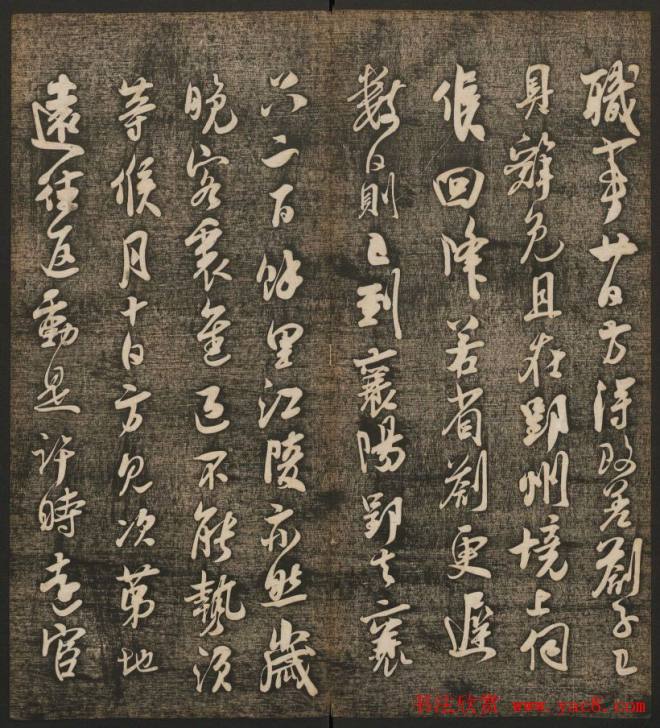 職事廿一日方得改差劄子已
具辭免且在郢州境上伺
候回降若省劄更遲
數日則已到襄陽郢去襄
只二百餘里江陵亦然歲
晚客裏進不能勢須
等候月十日方見次第地
遠往返動是許時遠官
书法欣赏 www.yac8.com